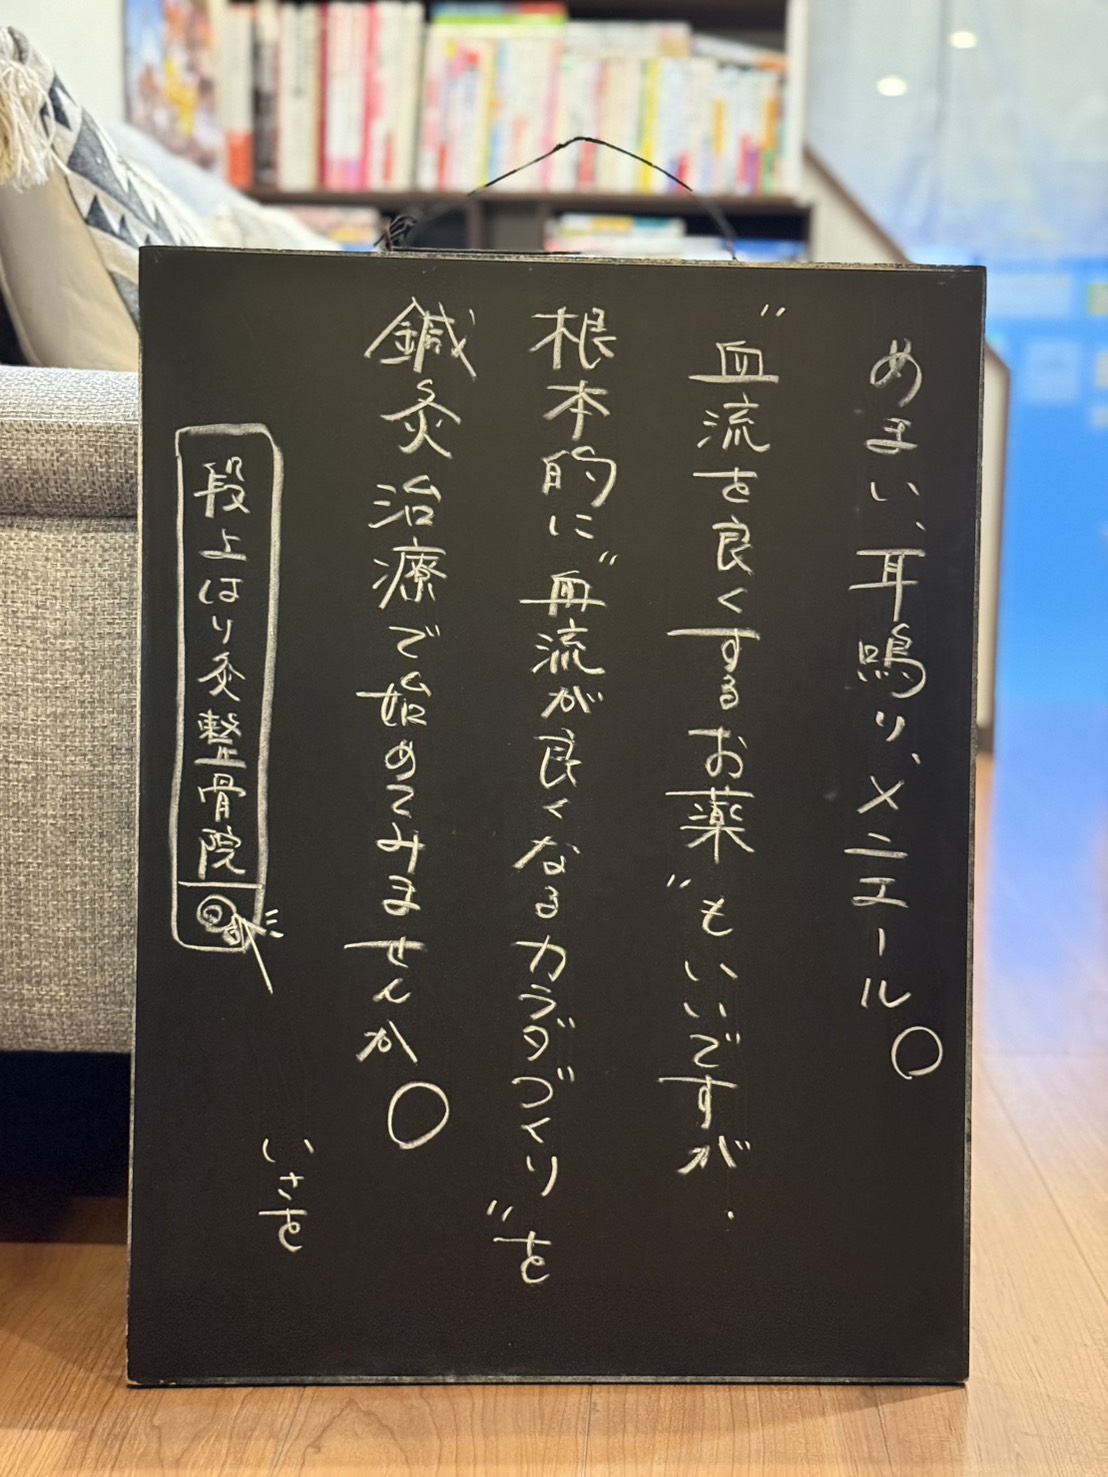 めまい、耳鳴り、メニエール。
"血流を良くするお薬"もいいですが、
根本的に"血流が良くなるカラダづくり"を
鍼灸治療で始めてみませんか。
段上はり灸整骨院
いさを